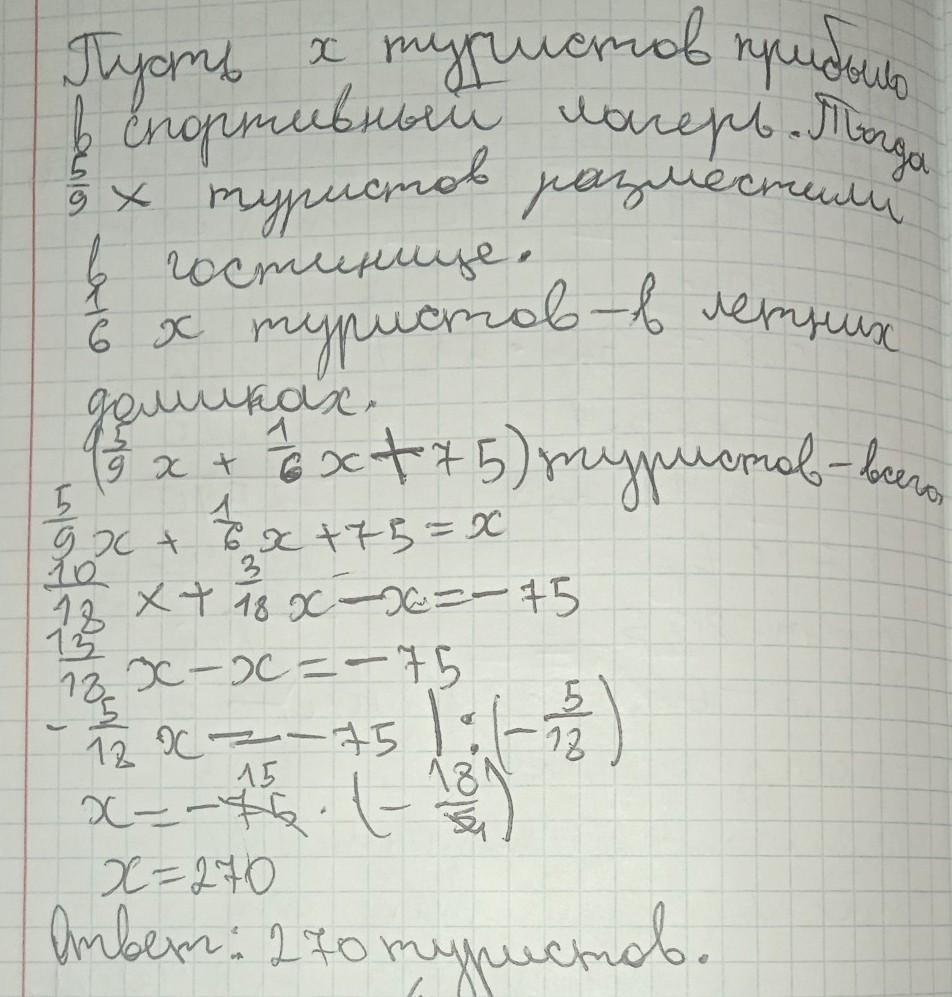 Пусть x туристов прибыло
в спортивный лагерь. Тогда
5/9 x туристов разместили
в гостинице.
1/6 x туристов – в летних
домиках.
(5/9 x + 1/6 x + 75) туристов – всего.
5/9 x + 1/6 x + 75 = x
10/18 x + 3/18 x – x = – 75
13/18 x – x = – 75
- 5/18 x = – 75 | : (– 5/18)
x = – 75 15 · (– 18/5 1)
x = 270
Ответ: 270 туристов.